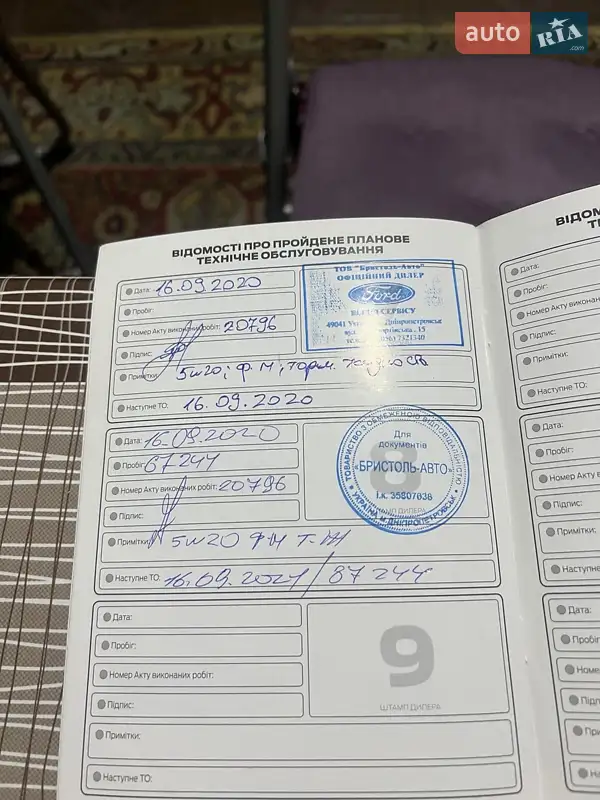 auto RIA .com
ВІДОМОСТІ ПРО ПРОЙДЕНЕ ПЛАНОВЕ
ТЕХНІЧНЕ ОБСЛУГОВУВАННЯ
Дата: 16.09.2020
Пробіг:
Номер Акту виконаних робіт: 20796
Підпис:
Примітки: 5w20; ф. м; торм.
Наступне ТО: 16.09.2020
ТОВ "Бристоль-Авто"
ОФІЦІЙНИЙ ДИЛЕР
Ford
49041 Дніпропетровськ
15
2321340
Дата: 16.09.2020
Пробіг: 67244
Номер Акту виконаних робіт: 20796
Підпис:
Примітки: 5w20 ФМ ТЖ
Наступне ТО: 16.09.2021/87244
8
ШТАМП ДИЛЕРА
ТОВАРИСТВО З ОБМЕЖЕНОЮ ВІДПОВІДАЛЬНІСТЮ
Для
документів
«БРИСТОЛЬ-АВТО»
І.к. 35807638
УКРАЇНА М.ДНІПРОПЕТРОВСЬК
Дата:
Пробіг:
Номер Акту виконаних робіт:
Підпис:
Примітки:
Наступне ТО:
9
ШТАМП ДИЛЕРА
Дата:
Пробіг:
Номер Акту виконаних
Підпис:
Примітки:
Наступне ТО:
Дата:
Пробіг:
Номер Акту
Підпис:
Примітки:
Наступне
Дата:
Пробіг
Номер
Примітки